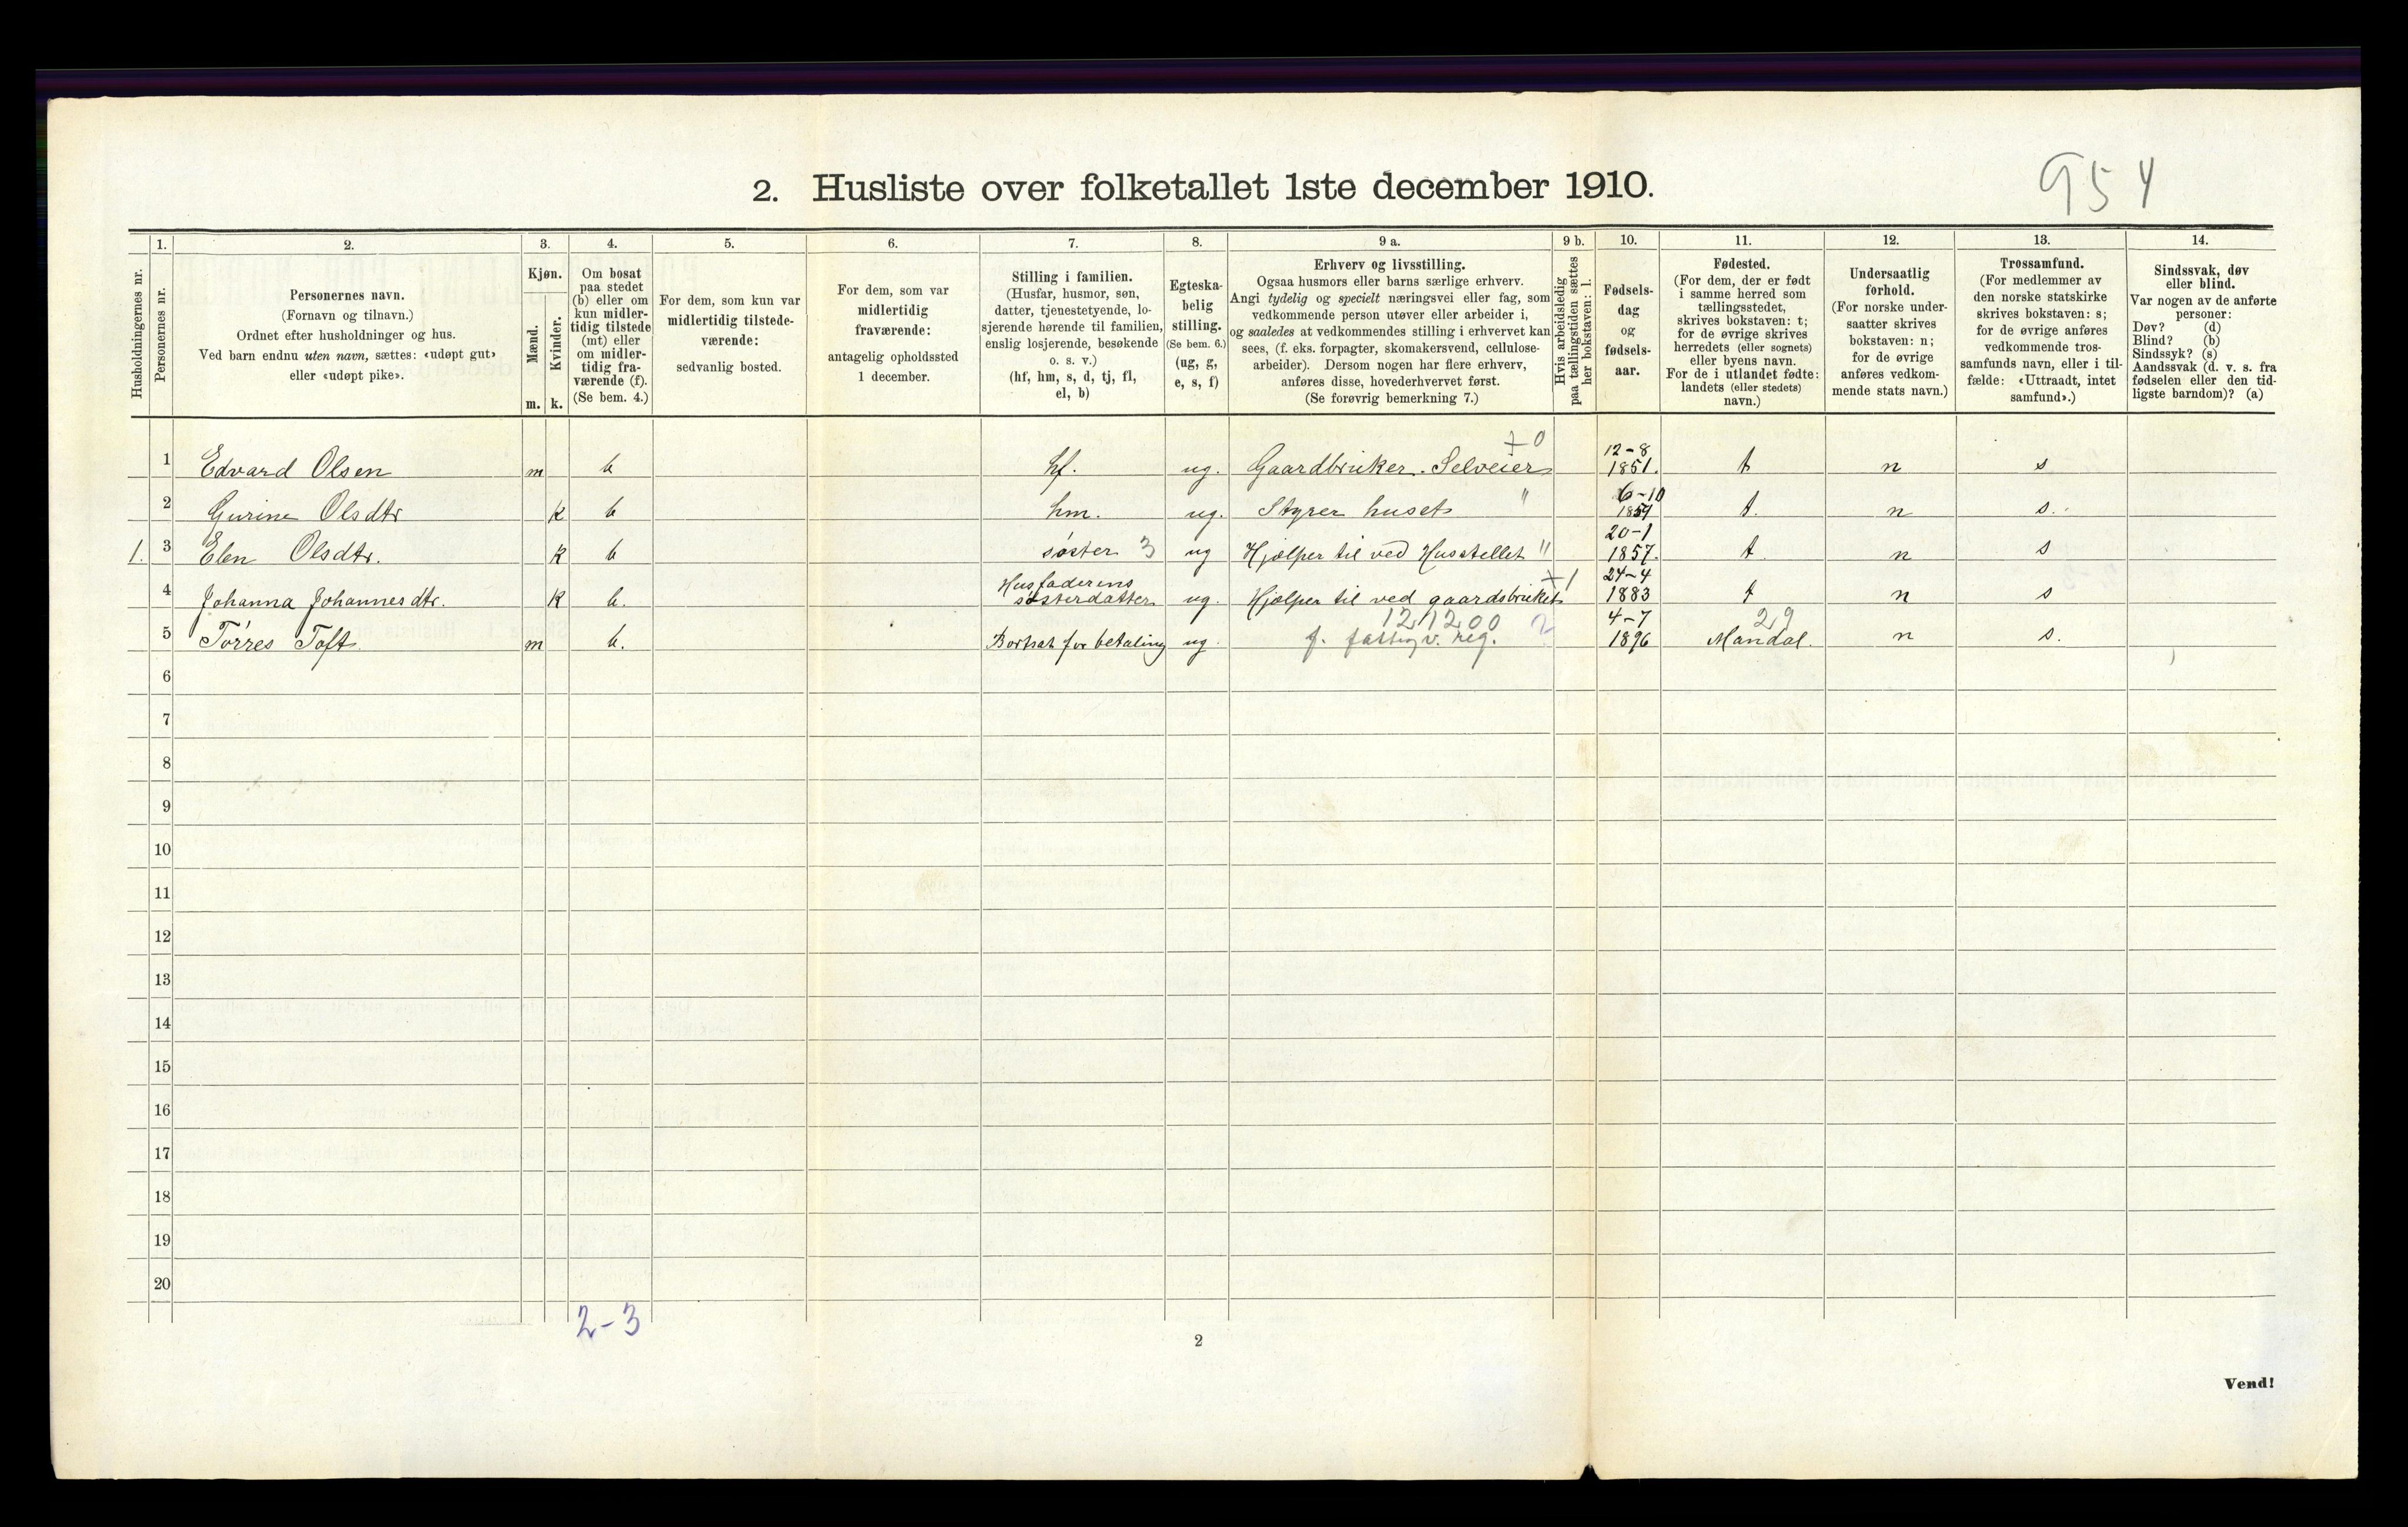 954
2. Husliste over folketallet 1ste december 1910.
Husholdningernes nr.
1.
Personernes nr.
2.
Personernes navn.
(Fornavn og tilnavn.)
Ordnet efter husholdninger og hus.
Ved barn endnu uten navn, sættes: «udøpt gut»
eller «udøpt pike».
3.
Kjøn.
Mænd.
Kvinder.
m. k.
4.
Om bosat
paa stedet
(b) eller om
kun midler-
tidig tilstede
(mt) eller
om midler-
tidig fra-
værende (f).
(Se bem. 4.)
5.
For dem, som kun var
midlertidig tilstede-
værende:
sedvanlig bosted.
6.
For dem, som var
midlertidig
fraværende:
antagelig opholdssted
1 december.
7.
Stilling i familien.
(Husfar, husmor, søn,
datter, tjenestetyende, lo-
sjerende hørende til familien,
enslig losjerende, besøkende
o. s. v.)
(hf, hm, s, d, tj, fl,
el, b)
8.
Egteska-
belig
stilling.
(Se bem. 6.)
(ug, g,
e, s, f)
9 a.
Erhverv og livsstilling.
Ogsaa husmors eller barns særlige erhverv.
Angi tydelig og specielt næringsvei eller fag, som
vedkommende person utøver eller arbeider i,
og saaledes at vedkommendes stilling i erhvervet kan
sees, (f. eks. forpagter, skomakersvend, cellulose-
arbeider). Dersom nogen har flere erhverv,
anføres disse, hovederhvervet først.
(Se forøvrig bemerkning 7.)
9 b.
Hvis arbeidsledig
paa tællingstiden sættes
her bokstaven: l.
10.
Fødsels-
dag
og
fødsels-
aar.
11.
Fødested.
(For dem, der er født
i samme herred som
tællingsstedet,
skrives bokstaven: t;
for de øvrige skrives
herredets (eller sognets)
eller byens navn.
For de i utlandet fødte:
landets (eller stedets)
navn.)
12.
Undersaatlig
forhold.
(For norske under-
saatter skrives
bokstaven: n;
for de øvrige
anføres vedkom-
mende stats navn.)
13.
Trossamfund.
(For medlemmer av
den norske statskirke
skrives bokstaven: s;
for de øvrige anføres
vedkommende tros-
samfunds navn, eller i til-
fælde: «Uttraadt, intet
samfund».)
14.
Sindssvak, døv
eller blind.
Var nogen av de anførte
personer:
Døv? (d)
Blind? (b)
Sindssyk? (s)
Aandssvak (d. v. s. fra
fødselen eller den tid-
ligste barndom)? (a)
1 Edvard Olsen m b hf. ug. Gaardbruker. Selveier 12-8 1851. t n s
2 Gurine Olsdtr k b hm. ug. Styrer huset " 6-10 1854 t. n s.
1. 3 Elen Olsdtr. k b søster 3 ug Hjælper til ved Husstellet " 20-1 1857. t n s
4 Johanna Johannesdtr. k b. Husfaderens søsterdatter ug. Hjælper til ved gaardsbruket 24-4 1883 t n s
5 Tørres Toft m b. Bortsat for betaling ug. 121200 2 f. fattigv. reg. 4-7 1896 29 Mandal. n s.
6
7
8
9
10
11
12
13
14
15
16
17
18
19
20
2-3
2
Vend!